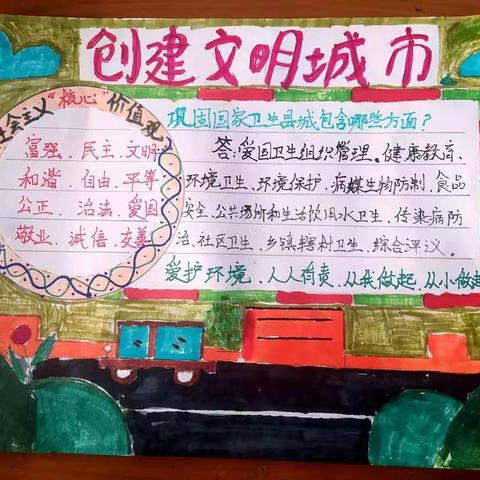 创建文明城市
社会主义“核心”价值观
富强、民主、文明
和谐、自由、平等
公正、法治、爱国
敬业、诚信、友善
巩固国家卫生县城包含哪些方面？
答:爱国卫生组织管理。健康教育、
环境卫生、环境保护、病媒生物防制、食品
安全、公共场所和生活饮用水卫生、传染病防
治、社区卫生、乡镇辖村卫生、综合评议。
爱护环境、人人有责、从我做起、从小做起